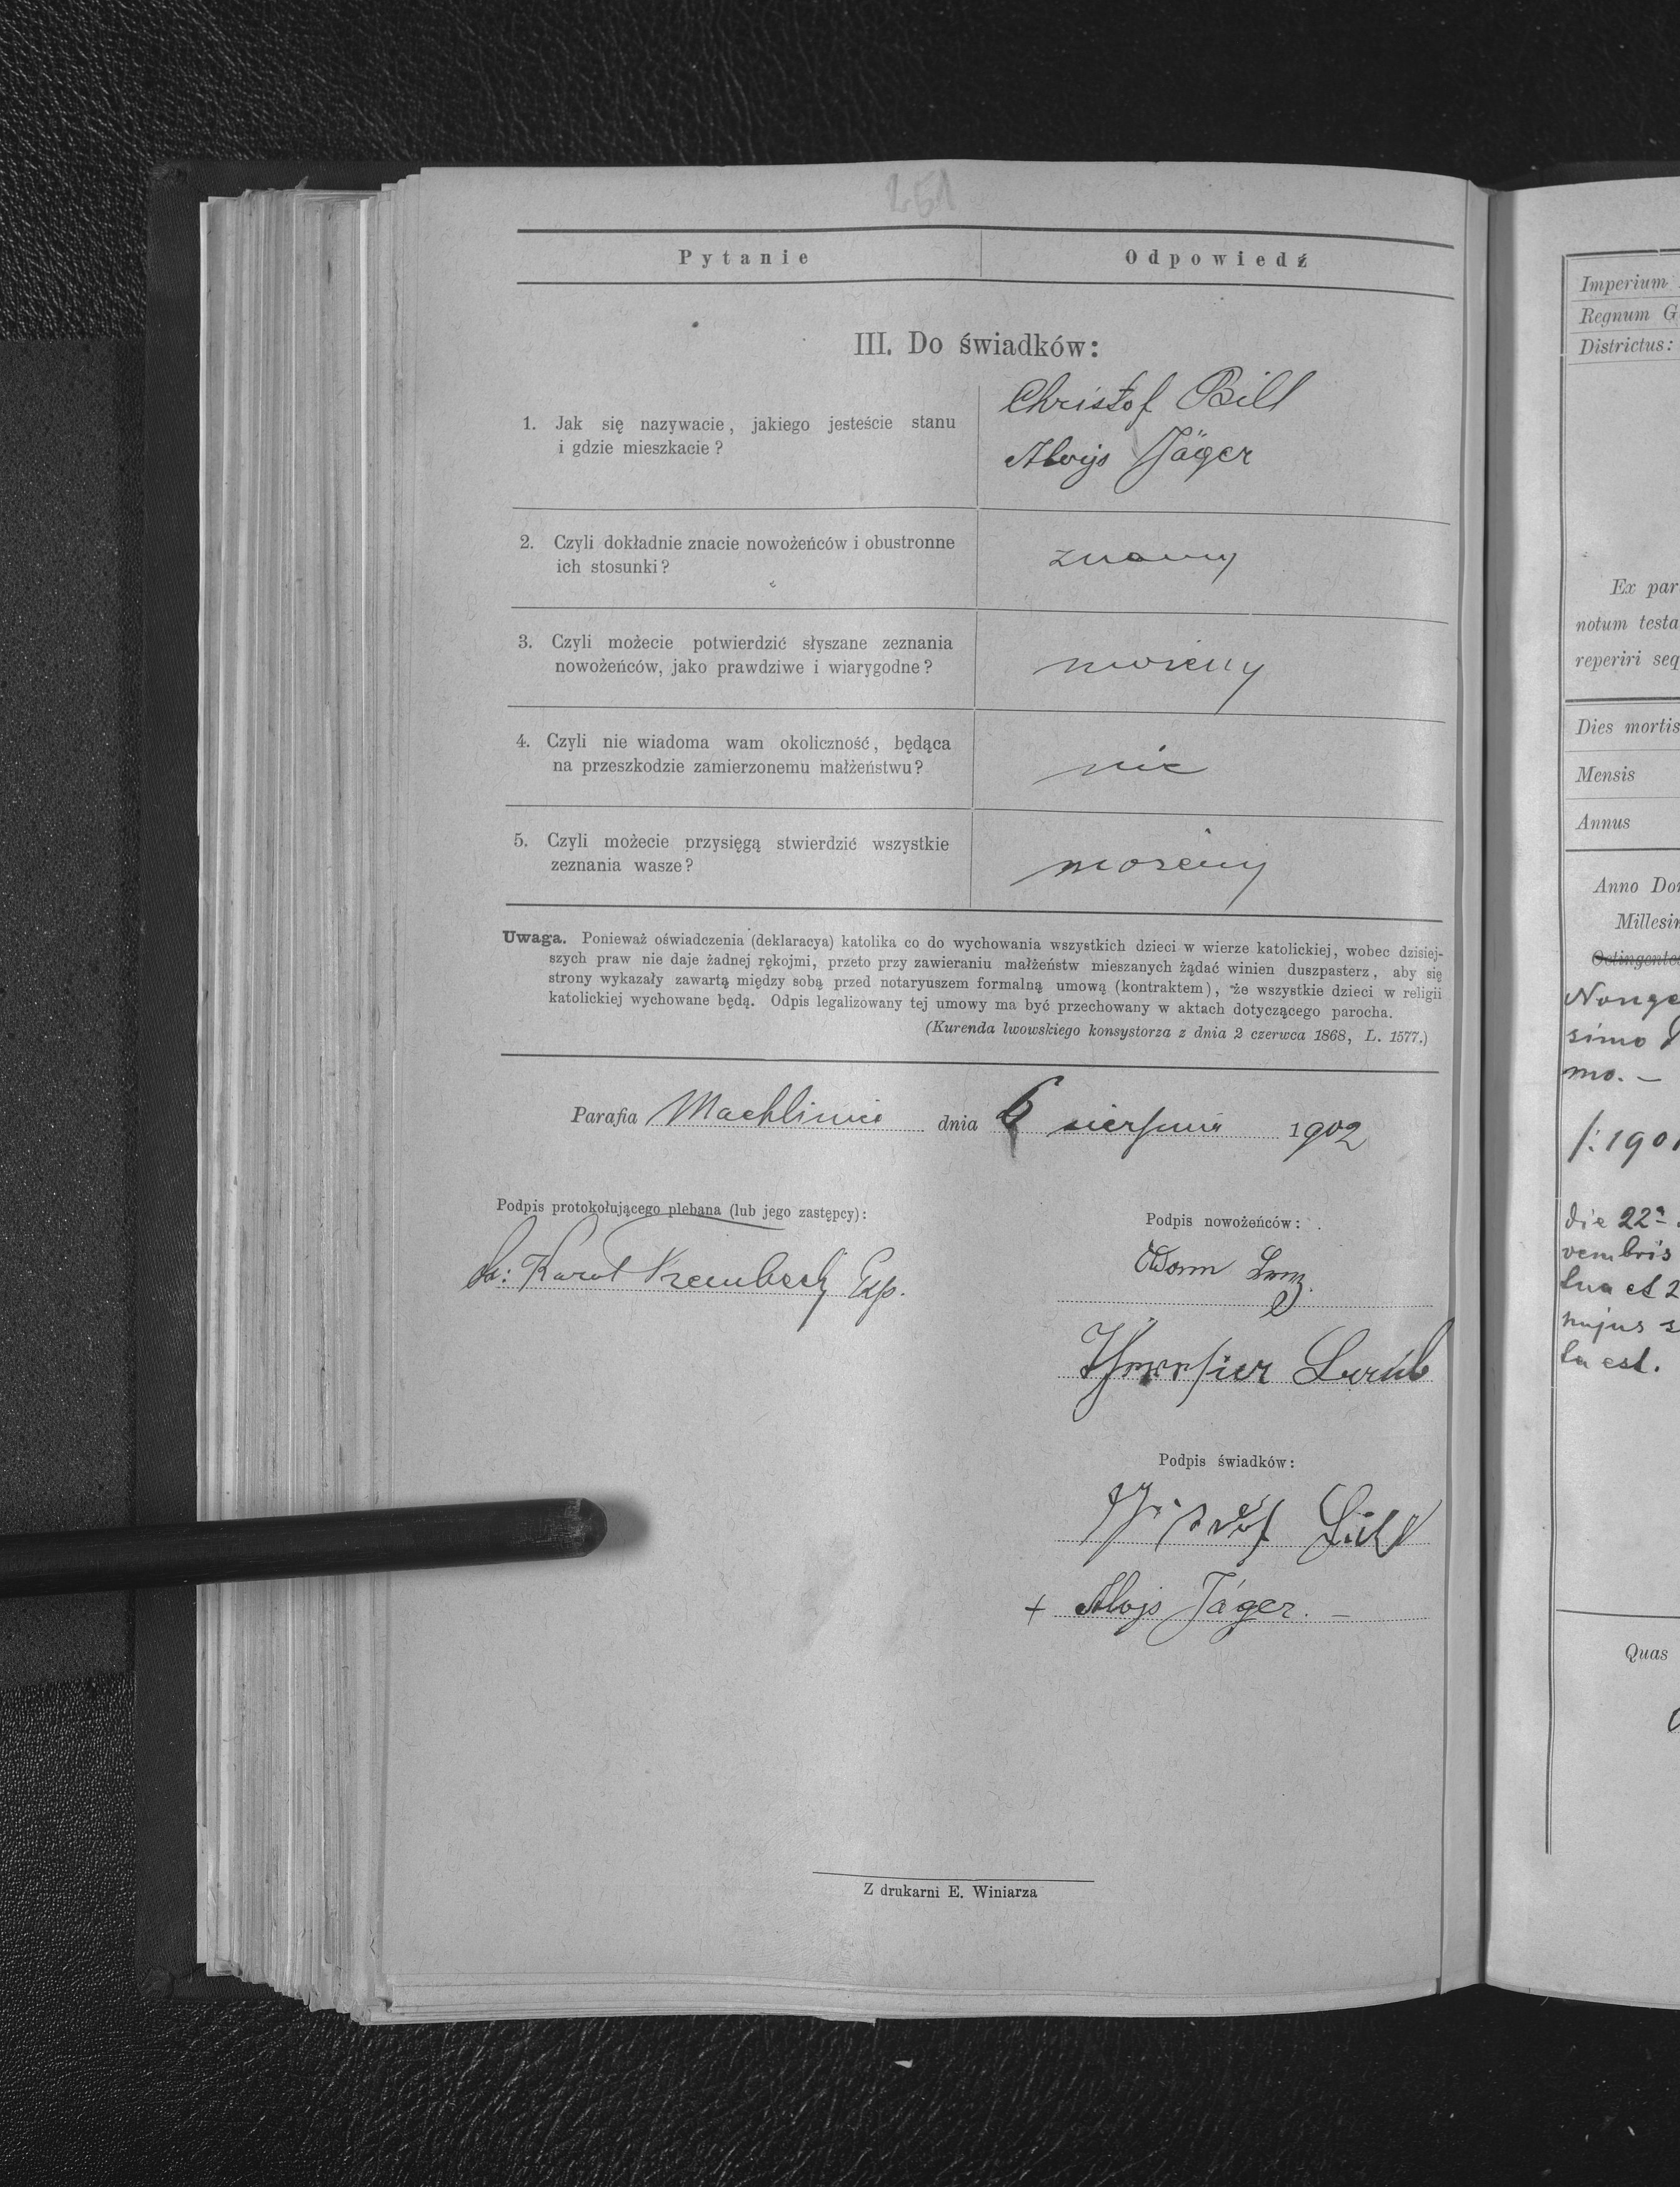 251
Pytanie
Odpowiedź
III. Do świadków:
1. Jak się nazywacie, jakiego jesteście stanu
i gdzie mieszkacie?
Christof Bill
Alojs Jäger
2. Czyli dokładnie znacie nowożeńców i obustronne
ich stosunki?
znamy
3. Czyli możecie potwierdzić słyszane zeznania
nowożeńców, jako prawdziwe i wiarygodne?
możemy
4. Czyli nie wiadoma wam okoliczność, będąca
na przeszkodzie zamierzonemu małżeństwu?
nie
5. Czyli możecie przysięgą stwierdzić wszystkie
zeznania wasze?
możemy
Uwaga. Ponieważ oświadczenia (deklaracya) katolika co do wychowania wszystkich dzieci w wierze katolickiej, wobec dzisiej-
szych praw nie daje żadnej rękojmi, przeto przy zawieraniu małżeństw mieszanych żądać winien duszpasterz, aby się
strony wykazały zawartą między sobą przed notaryuszem formalną umową (kontraktem), że wszystkie dzieci w religii
katolickiej wychowane będą. Odpis legalizowany tej umowy ma być przechowany w aktach dotyczącego parocha.
(Kurenda lwowskiego konsystorza z dnia 2 czerwca 1868, L. 1577.)
Parafia Machliniec dnia 6 sierpnia 1902
Podpis protokołującego plebana (lub jego zastępcy):
Karol Exp.
Podpis nowożeńców:
Adam
Podpis świadków:
+ Alojs Jäger. –
Z drukarni E. Winiarza
Imperium
Regnum G
Districtus:
Ex par
notum testa
reperiri seq
Dies mortis
Mensis
Annus
Anno Do
Millesi
Octingente
Nonge
simo
mo. –
/:190
die 22ª
vembris
et 2
hujus
est.
Quas